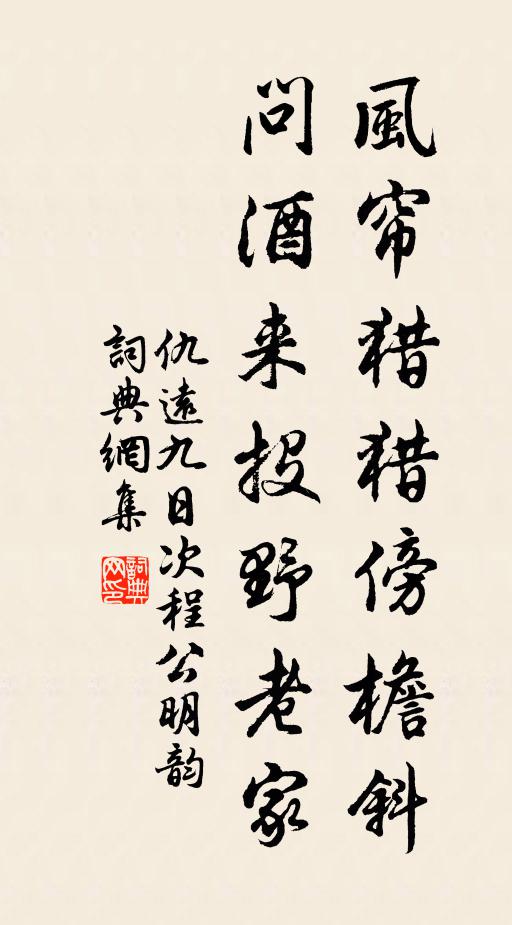 風帘猎猎傍檐斜
問酒来投野老家
仇遠九日次程公明韵
詞典網集
詞典網印